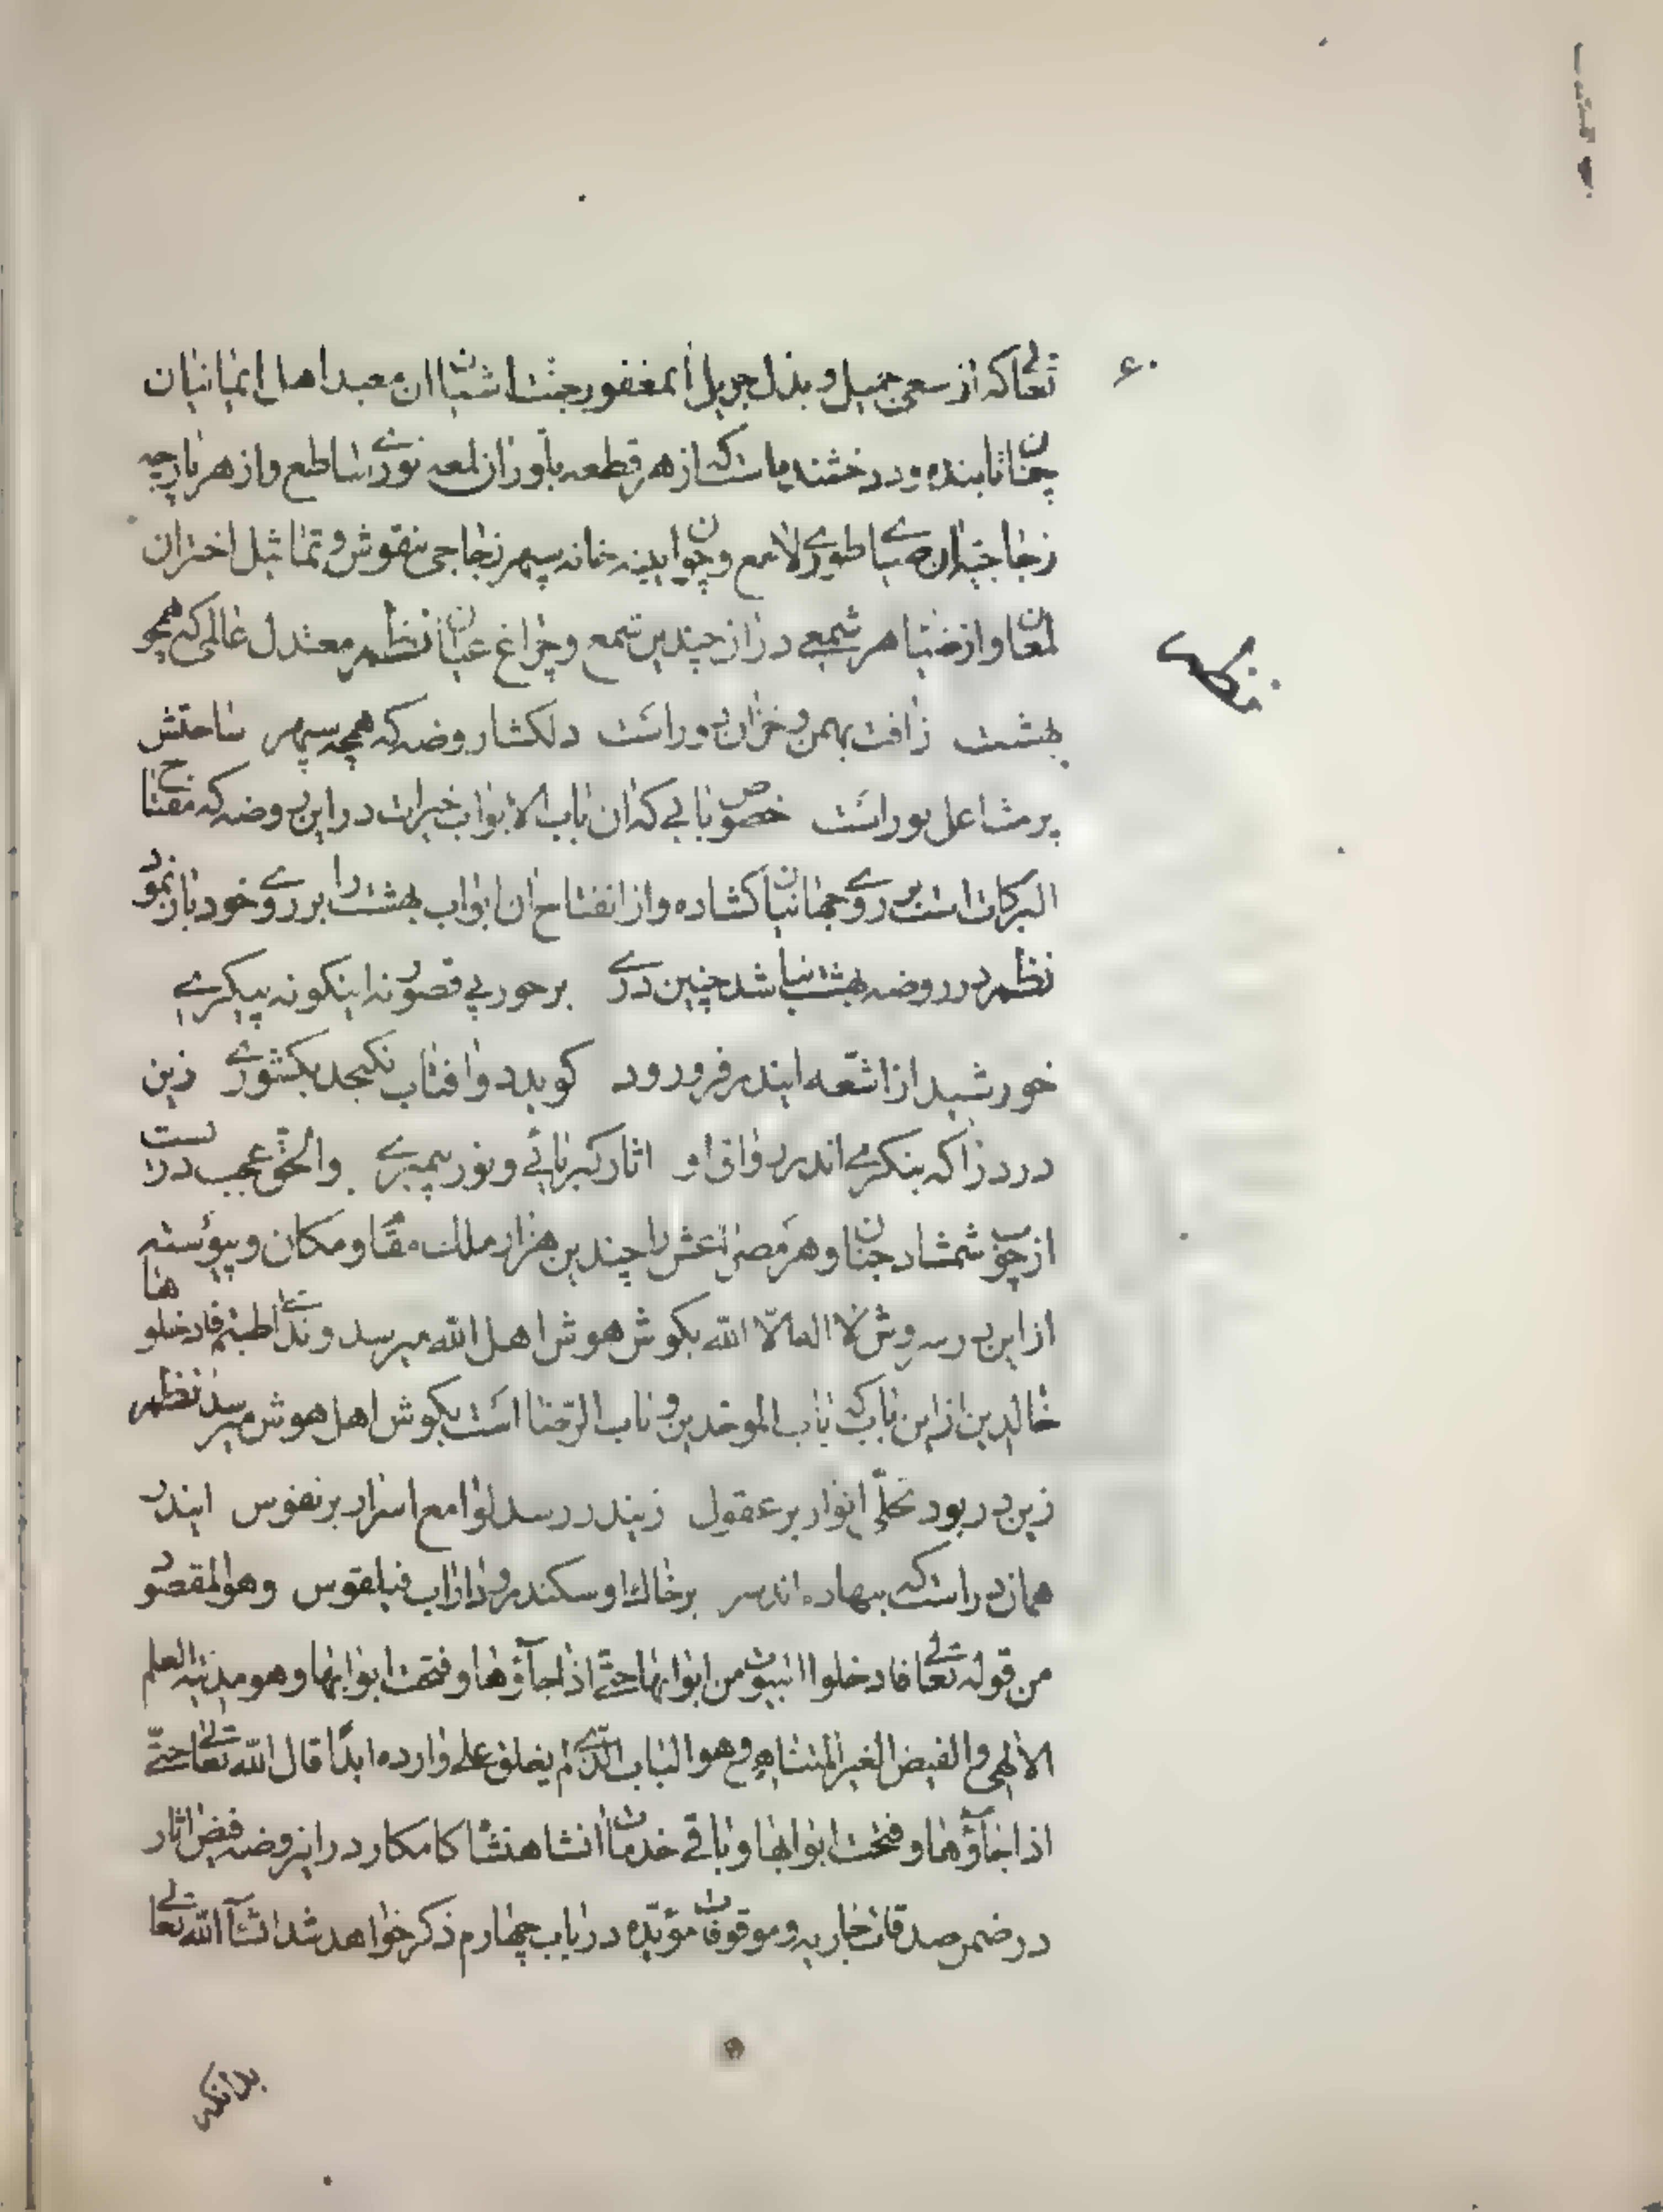 ۶۰
تعالی که از سعی جمیل و بذل جزیل آنمغفور جنت اشیان ان معبد اهل ایمانیان
چنان تابنده و درخشنده است که از هر قطعه بلور ان لمعه نوری ساطع و از هر پارچه
زجاجی ان ضیا طوری لامع و چون ایینه خانه سپهر زجاجی بنقوش و تماثیل اختران
لمعان و از ضیا هر شمعی در از چندین شمع و چراغ عیان نظم معتدل عالمی که همچو
بهشت زافت بهمن و خزان دور است دلکشا روضه که همچه سپهر ساحتش
پر مشاعل نور است خصوص بابی که ان باب الابواب خیرات در این روضه که مفتاح
البرکات است بر روی جهانیان کشاده و از انفتاح ان ابواب بهشت را بر روی خود باز نمود
نظم در روضه بهشت نباشد چنین دری بر حور بی قصور نه اینکونه پیکری
خورشید از اشعه ایندر فرو رود کوید دو افتاب نکنجد بکشوری زین
در در ا که بنکری اندر رواق او اثار کبریائی و نور پیمبری والحق عجب دریست
از چوب شمشاد جنان و هر مصراعش را چندین هزار ملک مقام و مکان و پیوسته
از این در سروش لا اله الا الله بکوش هوش اهل الله میرسد و ندای طبتم فادخلوها
خالدین از این باب که باب الموحدین و باب الرحمن است بکوش اهل هوش میرسد نظم
زین در بود تجلی انوار بر عقول زیندر رسد لوامع اسرار بر نفوس ایندر
همان در است که بنهاده اند سر بر خاک او سکندر و داراب فیلقوس و هو المقصود
من قوله تعالی فادخلوا البیوت من ابوابها حتی اذا جآؤها و فتحت ابوابها و هو مدینه العلم
الالهی و الفیض الغیر المتناهی و هو الباب الذی لم یغلق علی وارده ابدًا قال الله تعالی حتی
اذا جآؤها و فتحت ابوابها و باقی خدمات انشاهنشاه کامکار در اینروضه فیض اثار
در ضمن صدقات جاریه و موقوفات مؤبده در باب چهارم ذکر خواهد شد انشآ الله تعالی
بدانکه